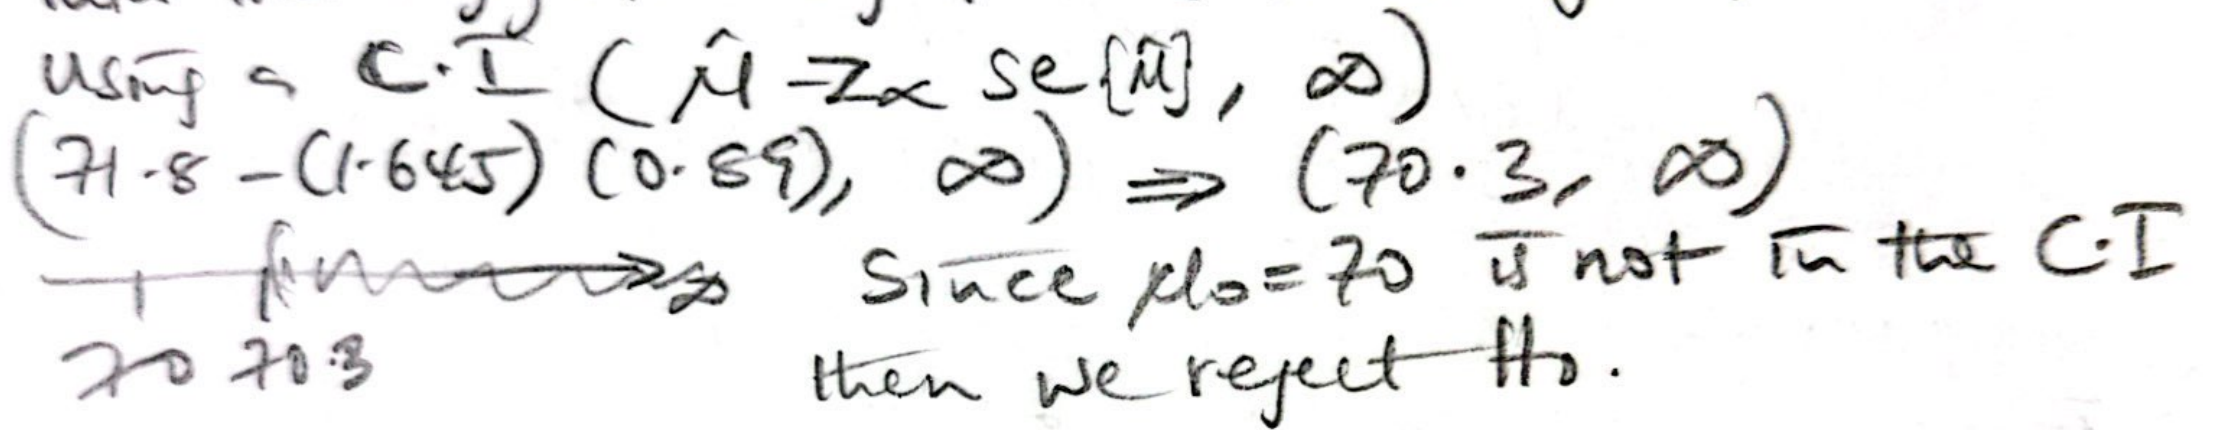 Using a C.I (μ̂ - Zα se{μ̂}, ∞)
(71.8 - (1.645) (0.89), ∞) ⇒ (70.3, ∞)
∞ Since μ₀ = 70 is not in the C.I
70 70.3 then we reject H₀.